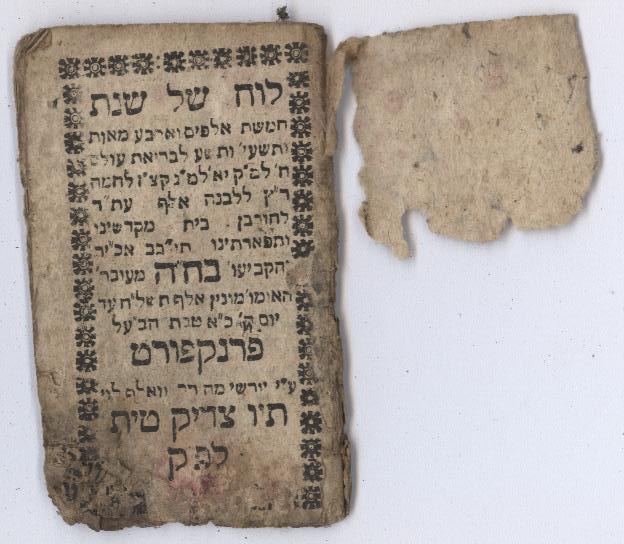 לוח של שנת
חמשת אלפים וארבע מאות
ותשעי׳ ותשע לבריאת עולם
ח׳ למ״ק י״א למ״נ קצ״ז לחמה
ר״ץ ללבנה אלף עת״ר
לחורבן בית מקדשינו
ותפארתינו תי״בב אכי״ר
הקביעו׳ בח״ה מעובר׳
האומו׳ מונין אלף תשל״ח עד
יום ה׳ כ״א טבת הבע״ל
פרנקפורט
ע״י יורשי מהר״ר וואלף
תיו צדיק טית
לפ״ק